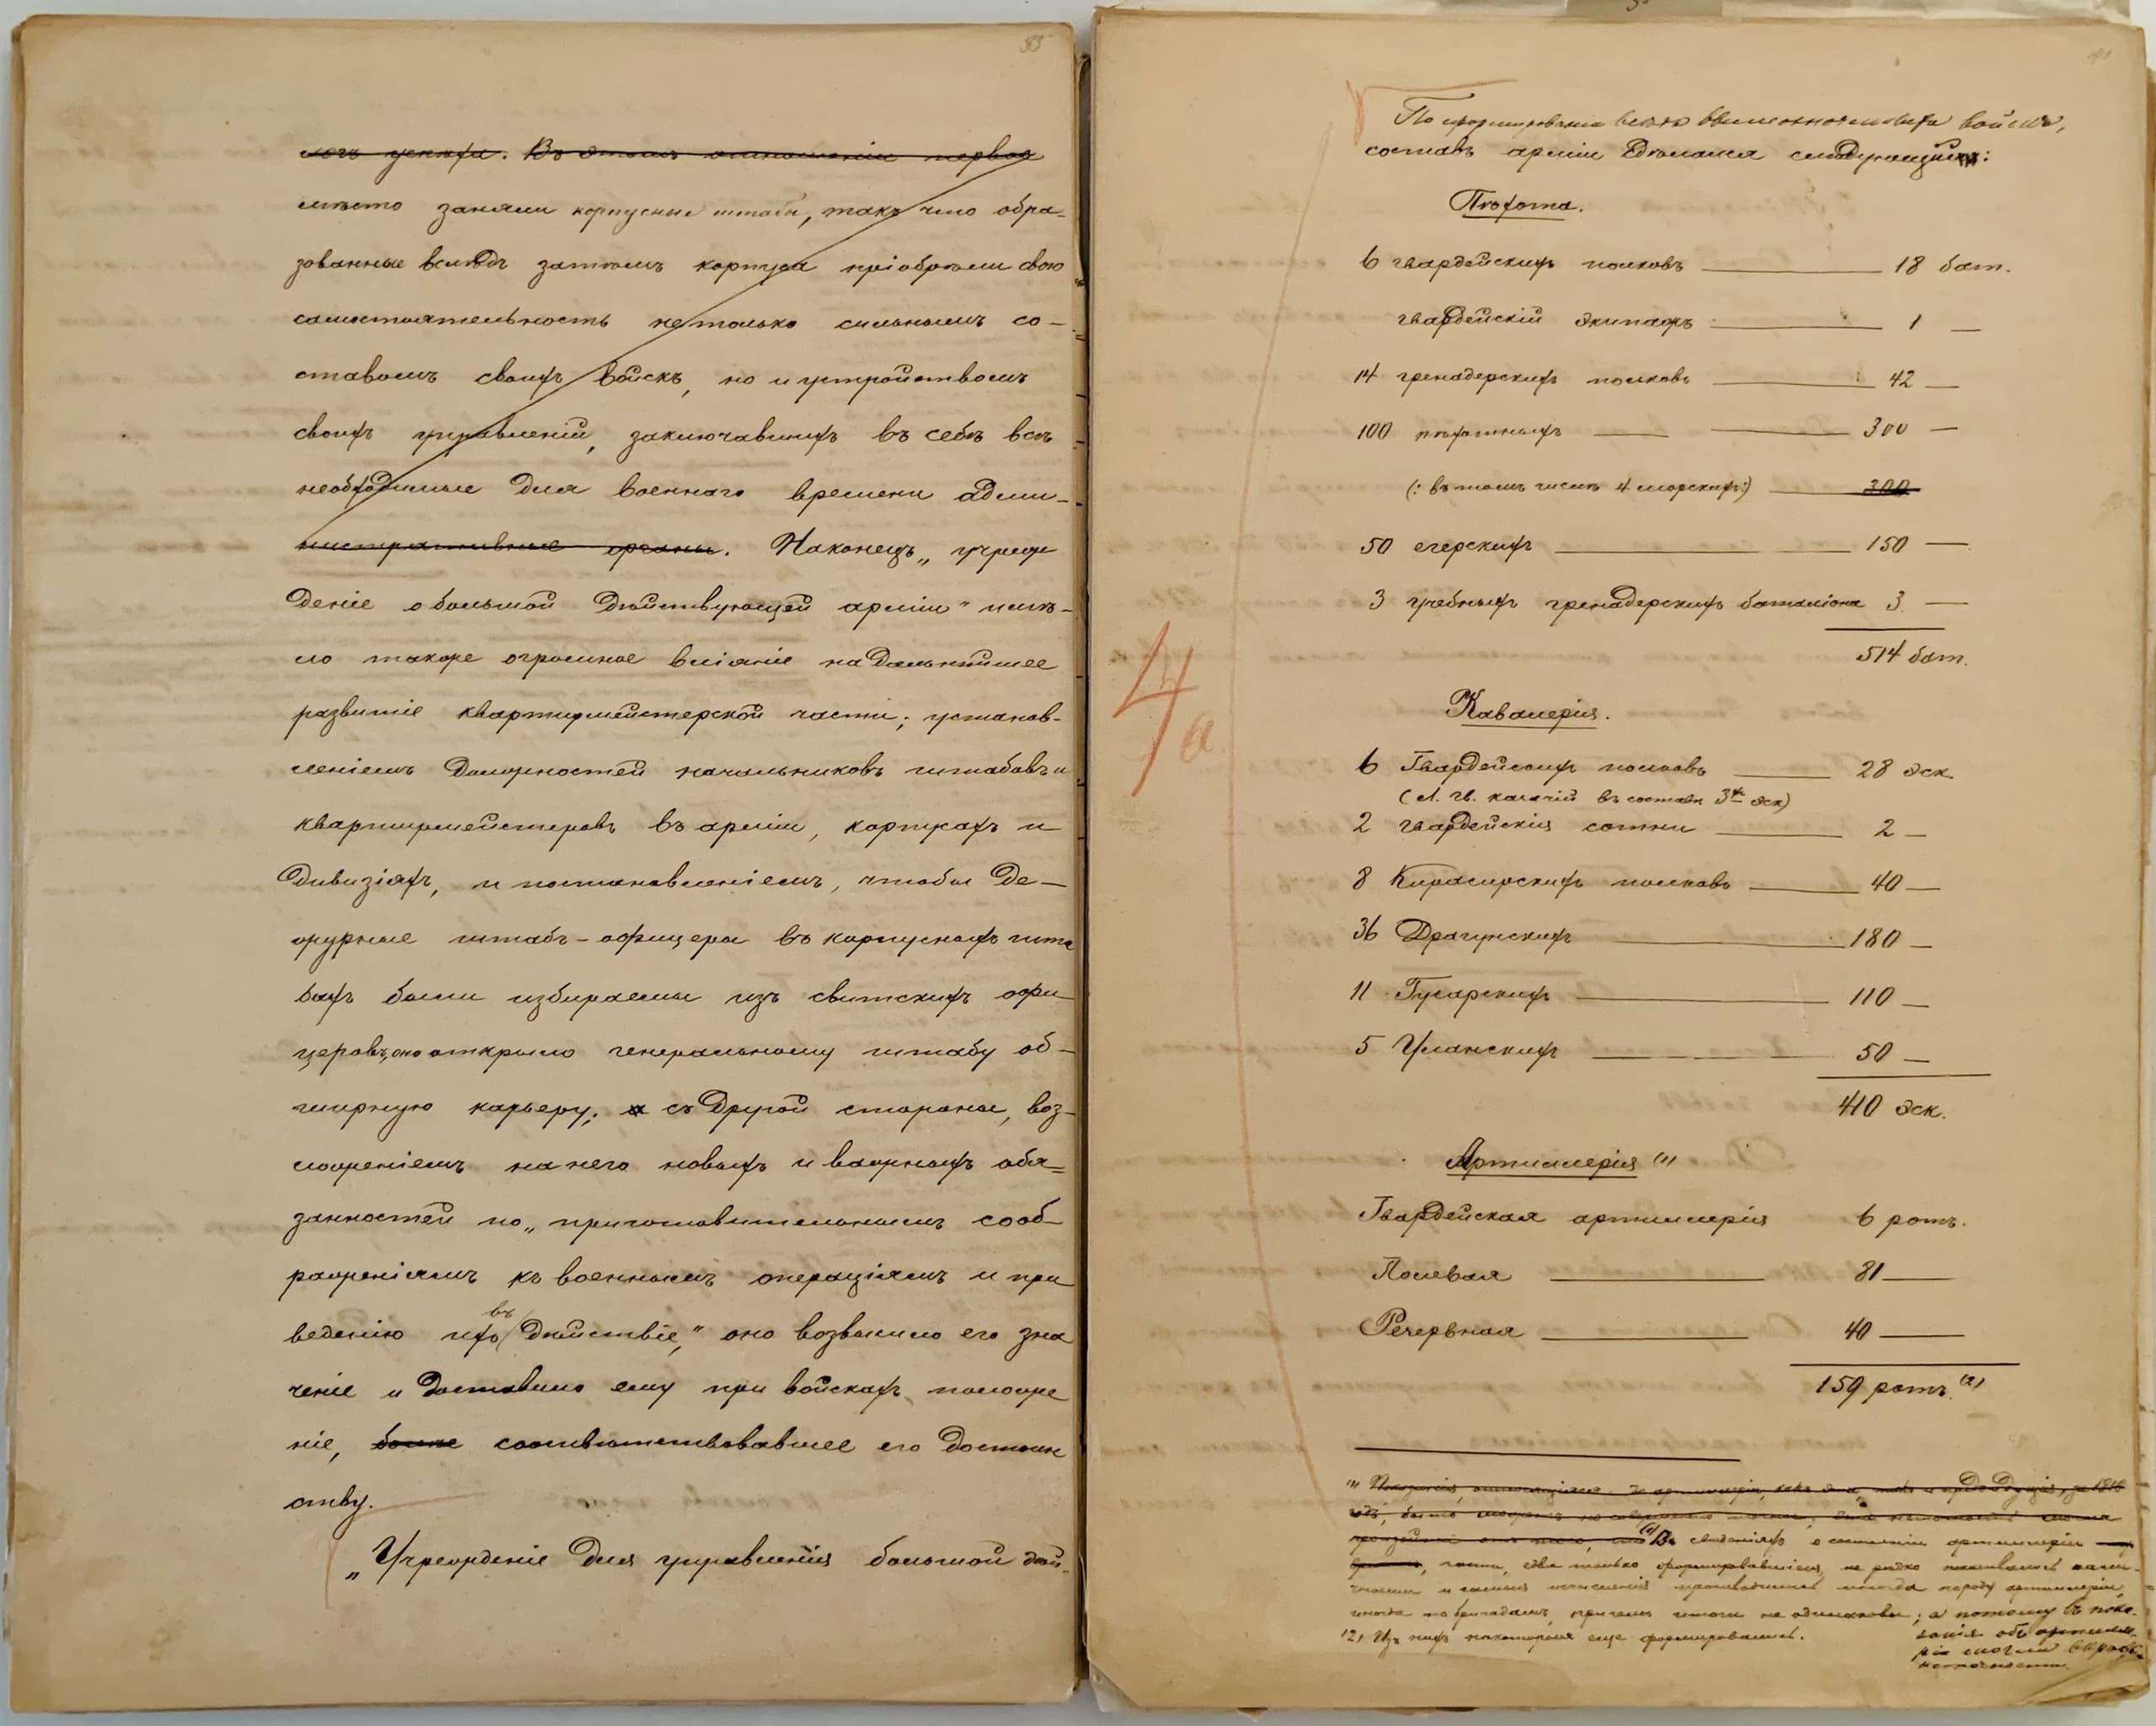 логъ успѣха. Въ этомъ отношеніи первое
мѣсто заняли корпусные штабы, такъ что обра-
зованные вслѣдъ затѣмъ корпуса пріобрѣли свою
самостоятельность не только сильнымъ со-
ставомъ своихъ войскъ, но и устройствомъ
своихъ управленій, заключавшихъ въ себѣ всѣ
необходимые для военнаго времени адми-
нистративные органы. Наконецъ „учреж
деніе о большой дѣйствующей арміи" имѣ-
ло также огромное вліяніе на дальнѣйшее
развитіе квартирмейстерской части; установ-
леніемъ должностей начальниковъ штабовъ и
квартирмейстеровъ въ арміи, корпусахъ и
дивизіяхъ, и постановленіемъ, чтобы де-
журные штабъ-офицеры въ корпусныхъ шта
бахъ были избираемы изъ свитскихъ офи-
церовъ, оно открыло генеральному штабу об-
ширную карьеру; а съ другой стороны, воз-
ложеніемъ на него новыхъ и важныхъ обя-
занностей по „приготовительнымъ сооб-
раженіямъ къ военнымъ операціямъ и при
веденію ихъ въ дѣйствіе," оно возвысило его зна
ченіе и доставило ему при войскахъ положе
ніе, болѣе соотвѣтствовавшее его достоин
ству.
„Учрежденіе для управленія большой дѣй-
По сформированіи всѣхъ войскъ,
составъ арміи сдѣлался слѣдующимъ:
Пѣхота.
6 гвардейскихъ полковъ 18 бат.
гвардейскій экипажъ 1 —
14 гренадерскихъ полковъ 42 —
100 пѣхотныхъ — 300 —
(: въ томъ числѣ 4 морскихъ:) 300
50 егерскихъ 150 —
3 учебныхъ гренадерскихъ баталіона 3 —
514 бат.
4 а
Кавалерія.
6 Гвардейскихъ полковъ 28 эск.
(Л. гв. казачій въ составѣ 3хъ эск)
2 гвардейскія сотни 2 —
8 Кирасирскихъ полковъ 40 —
36 Драгунскихъ 180 —
11 Гусарскихъ 110 —
5 Уланскихъ 50 —
410 эск.
Артиллерія (1)
Гвардейская артиллерія 6 ротъ.
Полевая 81 —
Резервная 40 —
159 ротъ. (2)
(1) Показанія, относящіяся до артиллеріи, какъ
(1) Въ свѣденіяхъ о состояніи артиллеріи
части, едва только формировавшіяся, не рѣдко
иногда по бригадамъ, причемъ итоги не одинаковы; а потому въ пока-
занія объ артилле-
ріи могли
неточности.
(2) Изъ нихъ нѣкоторыя еще формировались.